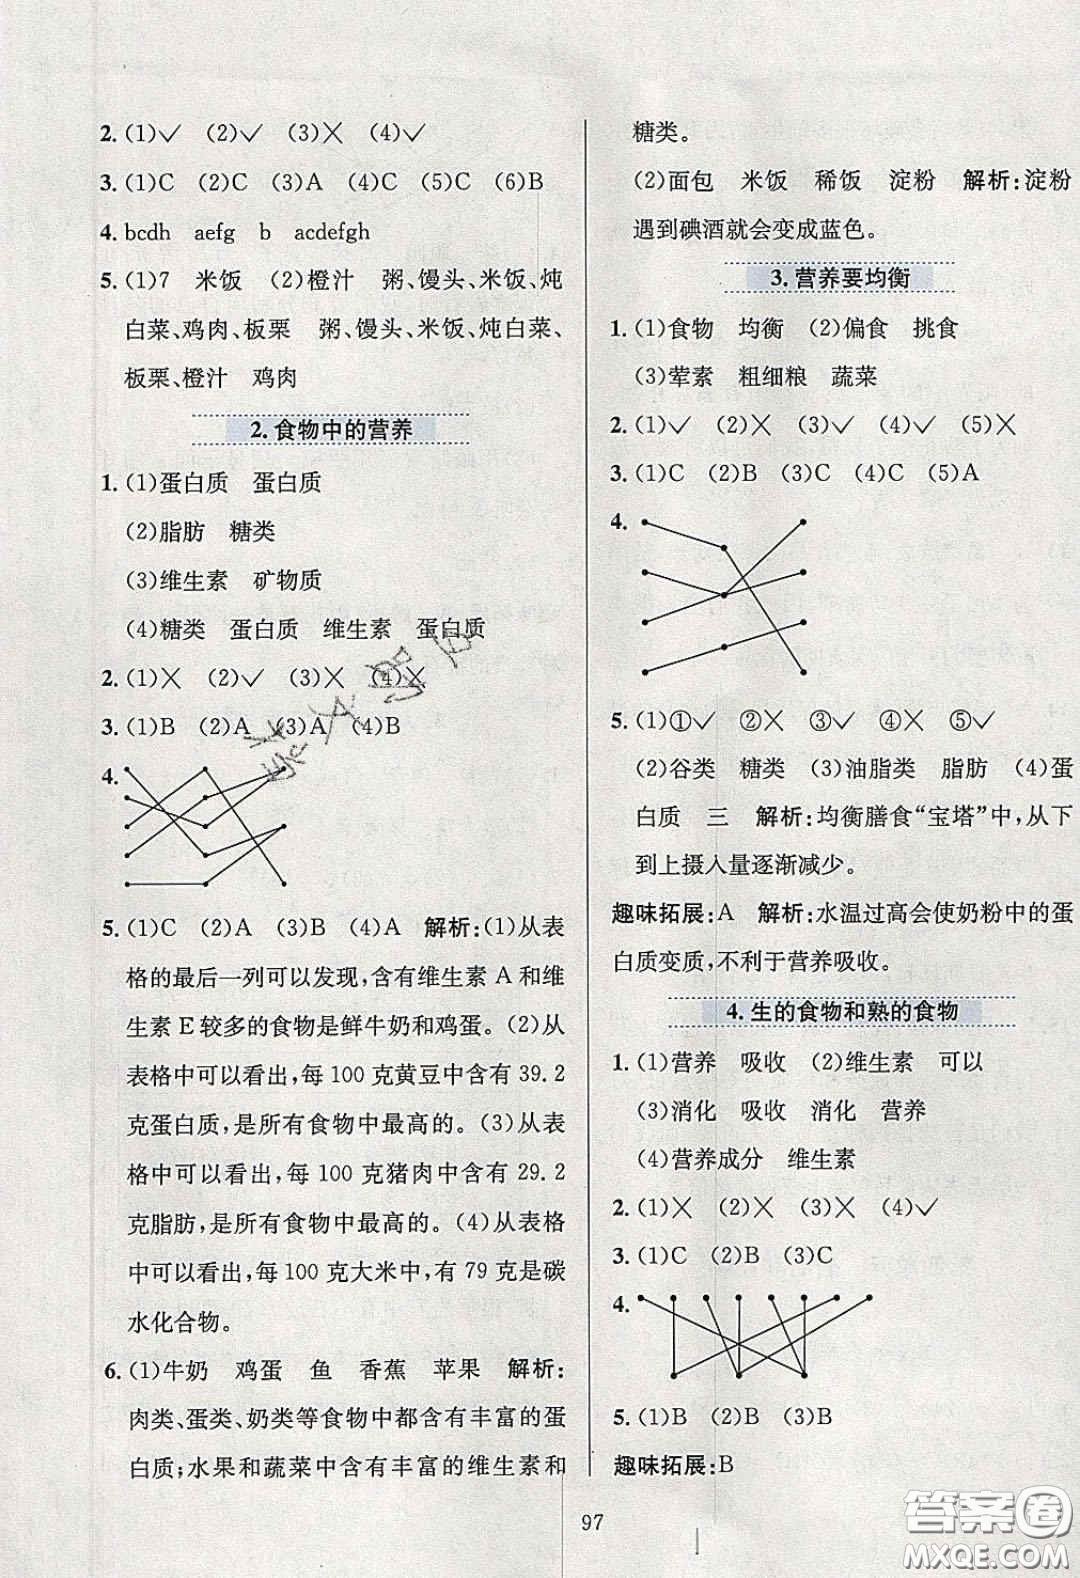 2. (1)✓ (2)✓ (3)╳ (4)✓
3. (1)C (2)C (3)A (4)C (5)C (6)B
4. bcdh aefg b acdefgh
5. (1)7 米饭 (2)橙汁 粥、馒头、米饭、炖
白菜、鸡肉、板栗 粥、馒头、米饭、炖白菜、
板栗、橙汁 鸡肉
2. 食物中的营养
1. (1)蛋白质 蛋白质
(2)脂肪 糖类
(3)维生素 矿物质
(4)糖类 蛋白质 维生素 蛋白质
2. (1)╳ (2)✓ (3)╳ (4)╳
3. (1)B (2)A (3)A (4)B
4.
5. (1)C (2)A (3)B (4)A 解析:(1)从表
格的最后一列可以发现,含有维生素 A 和维
生素 E 较多的食物是鲜牛奶和鸡蛋。(2)从
表格中可以看出,每 100 克黄豆中含有 39.2
克蛋白质,是所有食物中最高的。(3)从表
格中可以看出,每 100 克猪肉中含有 29.2
克脂肪,是所有食物中最高的。(4)从表格
中可以看出,每 100 克大米中,有 79 克是碳
水化合物。
6. (1)牛奶 鸡蛋 鱼 香蕉 苹果 解析:
肉类、蛋类、奶类等食物中都含有丰富的蛋
白质;水果和蔬菜中含有丰富的维生素和
糖类。
(2)面包 米饭 稀饭 淀粉 解析:淀粉
遇到碘酒就会变成蓝色。
3. 营养要均衡
1. (1)食物 均衡 (2)偏食 挑食
(3)荤素 粗细粮 蔬菜
2. (1)✓ (2)╳ (3)✓ (4)✓ (5)╳
3. (1)C (2)B (3)A (4)C (5)A
4.
5. (1)①✓ ②╳ ③✓ ④╳ ⑤✓
(2)谷类 糖类 (3)油脂类 脂肪 (4)蛋
白质 三 解析:均衡膳食“宝塔”中,从下
到上摄入量逐渐减少。
趣味拓展:A 解析:水温过高会使奶粉中的蛋
白质变质,不利于营养吸收。
4. 生的食物和熟的食物
1. (1)营养 吸收 (2)维生素 可以
(3)消化 吸收 消化 营养
(4)营养成分 维生素
2. (1)╳ (2)╳ (3)╳ (4)✓
3. (1)C (2)B (3)C
4.
5. (1)B (2)B (3)B
趣味拓展:B
97
答案圈
MXQE.COM